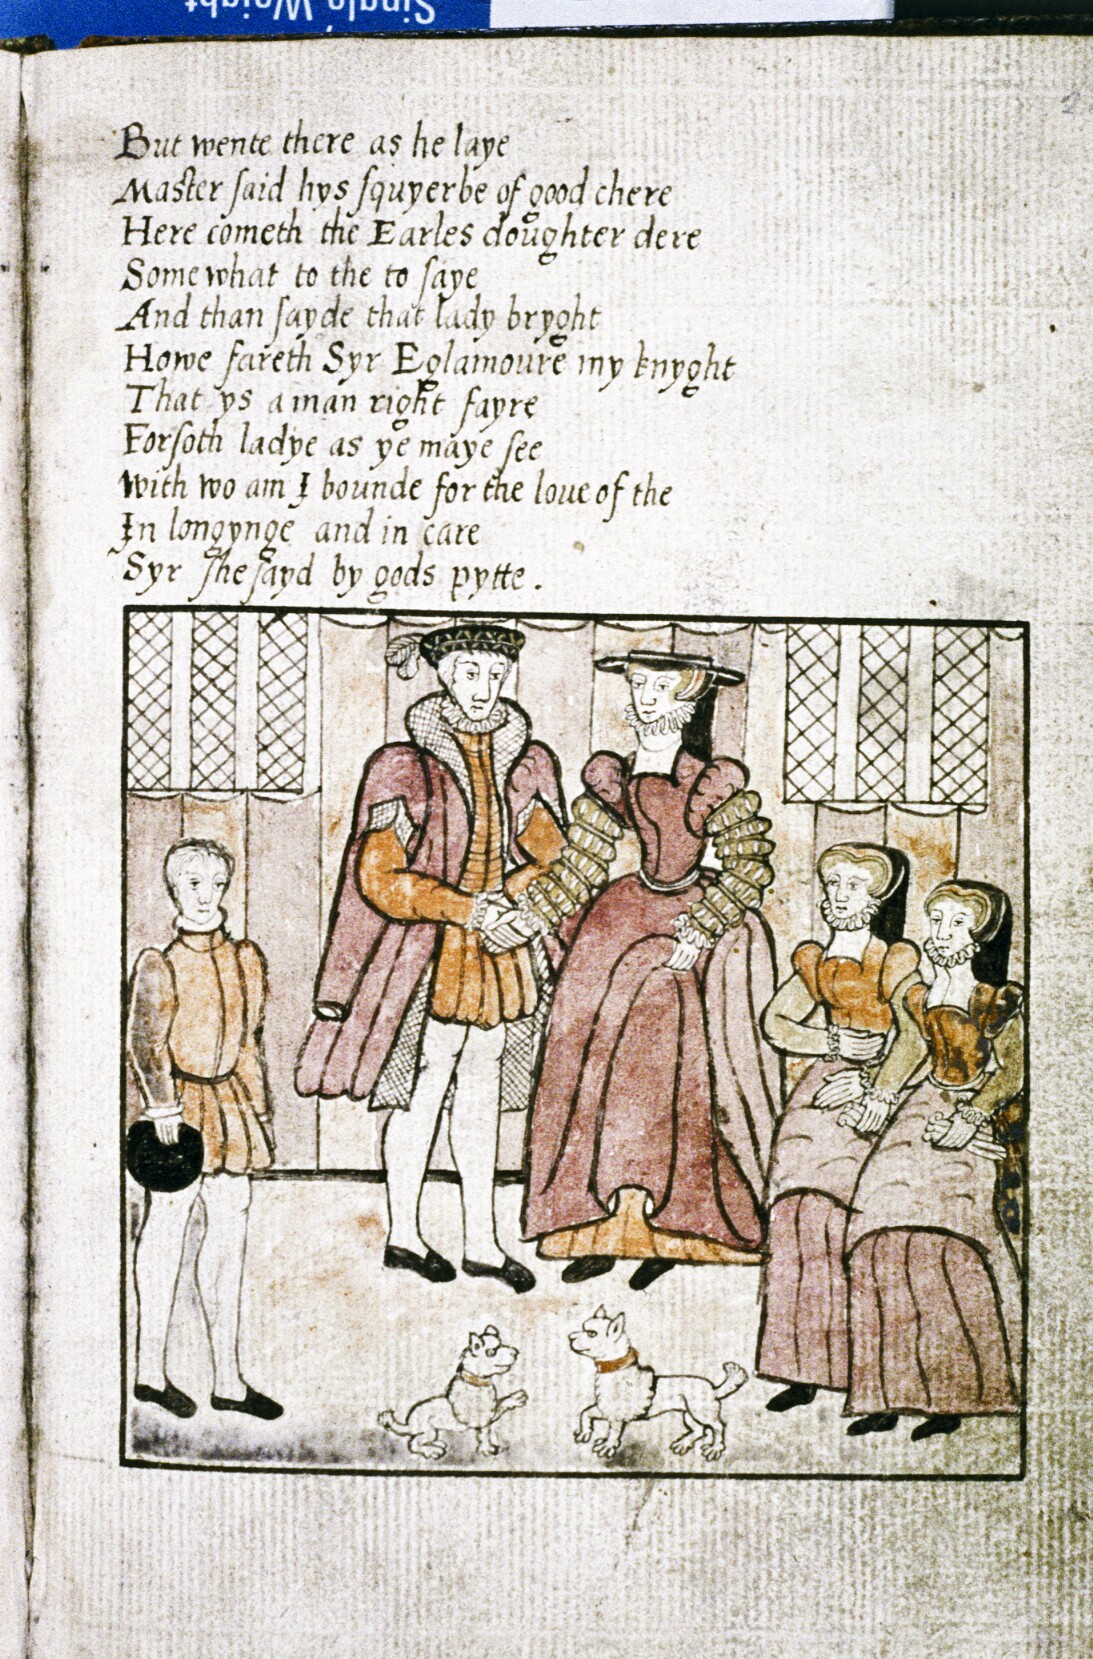 Single Weight
But wente there as he laye
Master ſaid hys ſquyer be of good chere
Here cometh the Earles doughter dere
Some what to the to ſaye
And than ſayde that lady bryght
Howe fareth Syr Eglamoure my knyght
That ys a man right fayre
Forſoth ladye as ye maye ſee
With wo am I bounde for the loue of the
In longynge and in care
Syr ſhe ſayd by gods pytte .